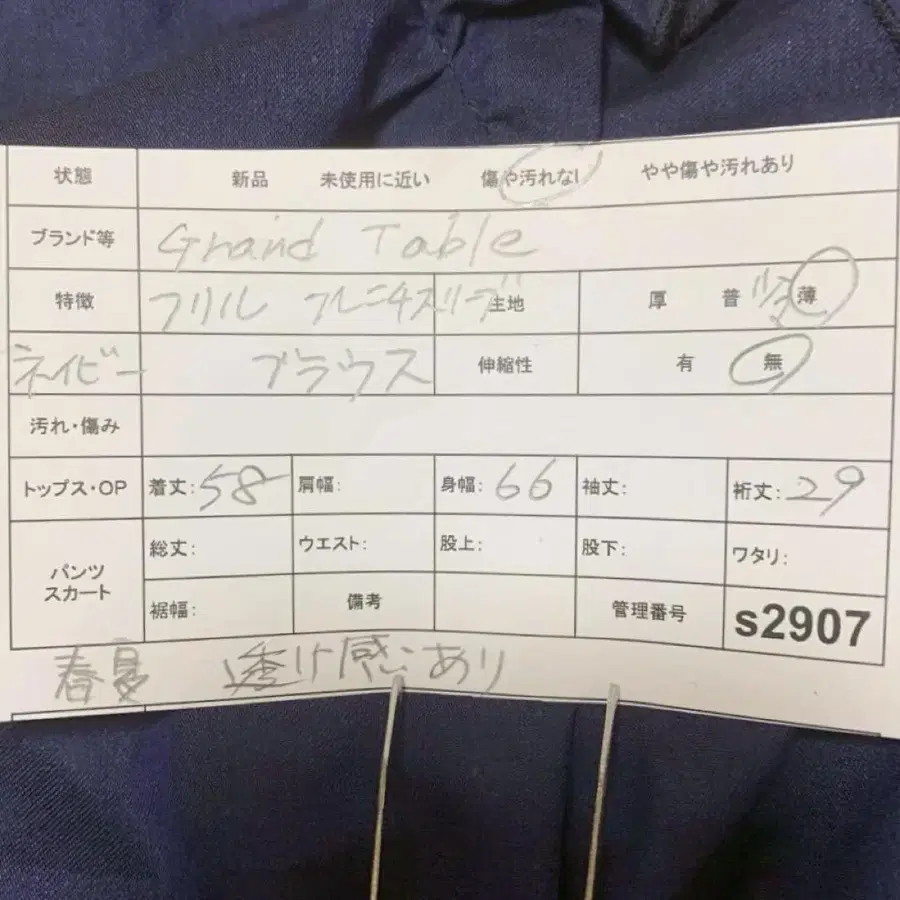 状態 新品 未使用に近い 傷や汚れない やや傷や汚れあり
ブランド等 Grand Table
特徴 フリル フレンチスリーブ 生地 厚 普 少ま 薄
ネイビー ブラウス 伸縮性 有 無
汚れ・傷み
トップス・OP 着丈:58 肩幅: 身幅:66 袖丈: 裄丈:29
パンツ スカート 総丈: ウエスト: 股上: 股下: ワタリ:
裾幅: 備考 管理番号 s2907
春夏 透け感あり